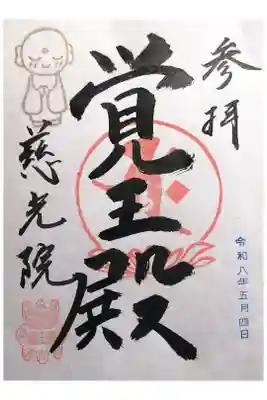 参拝
覚王殿
慈光院
令和八年五月四日